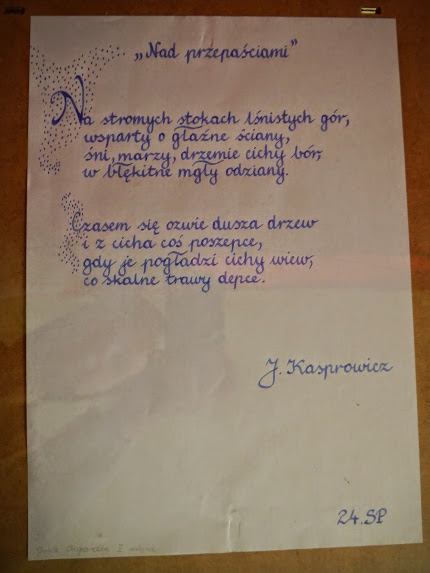 „Nad przepaściami”
Na stromych stokach lśnistych gór,
wsparty o głaźne ściany,
śni, marzy, drzemie cichy bór,
w błękitne mgły odziany.
Czasem się ozwie dusza drzew
i z cicha coś poszepce,
gdy je pogładzi cichy wiew,
co skalne trawy depce.
J. Kasprowicz
24.SP